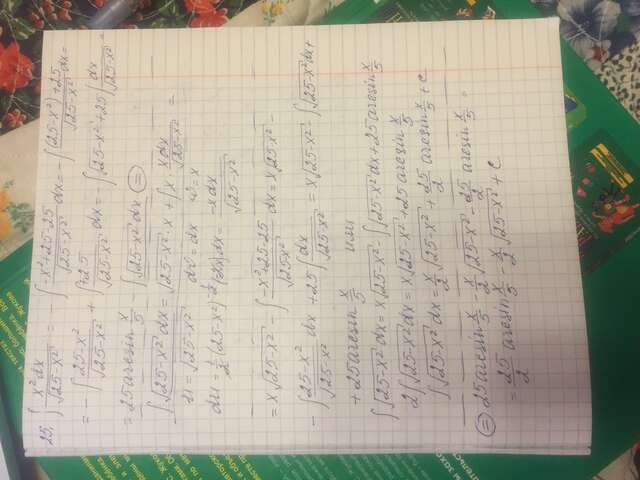 25. ∫ x² dx / √(25-x²) = - ∫ (-x²+25-25) / √(25-x²) dx = - ∫ ((25-x²)+25) / √(25-x²) dx =
= - ∫ (25-x²) / √(25-x²) + ∫ 25 / √(25-x²) dx = - ∫ √(25-x²) + 25 ∫ dx / √(25-x²) =
= 25 arcsin x/5 - ∫ √(25-x²) dx ⊜
∫ √(25-x²) dx = √(25-x²) · x + ∫ x · x dx / √(25-x²) =
u = √(25-x²) dv = dx v = x
du = 1/2 (25-x²)^(-1/2) (-2x) dx = -x dx / √(25-x²)
= x √(25-x²) - ∫ (-x²+25-25) / √(25-x²) dx = x √(25-x²) -
- ∫ (25-x²) / √(25-x²) dx + 25 ∫ dx / √(25-x²) = x √(25-x²) - ∫ √(25-x²) dx +
+ 25 arcsin x/5 или
∫ √(25-x²) dx = x √(25-x²) - ∫ √(25-x²) dx + 25 arcsin x/5
2 ∫ √(25-x²) dx = x √(25-x²) + 25 arcsin x/5
∫ √(25-x²) dx = x/2 √(25-x²) + 25/2 arcsin x/5 + C
⊜ 25 arcsin x/5 - x/2 √(25-x²) - 25/2 arcsin x/5 =
= 25/2 arcsin x/5 - x/2 √(25-x²) + C